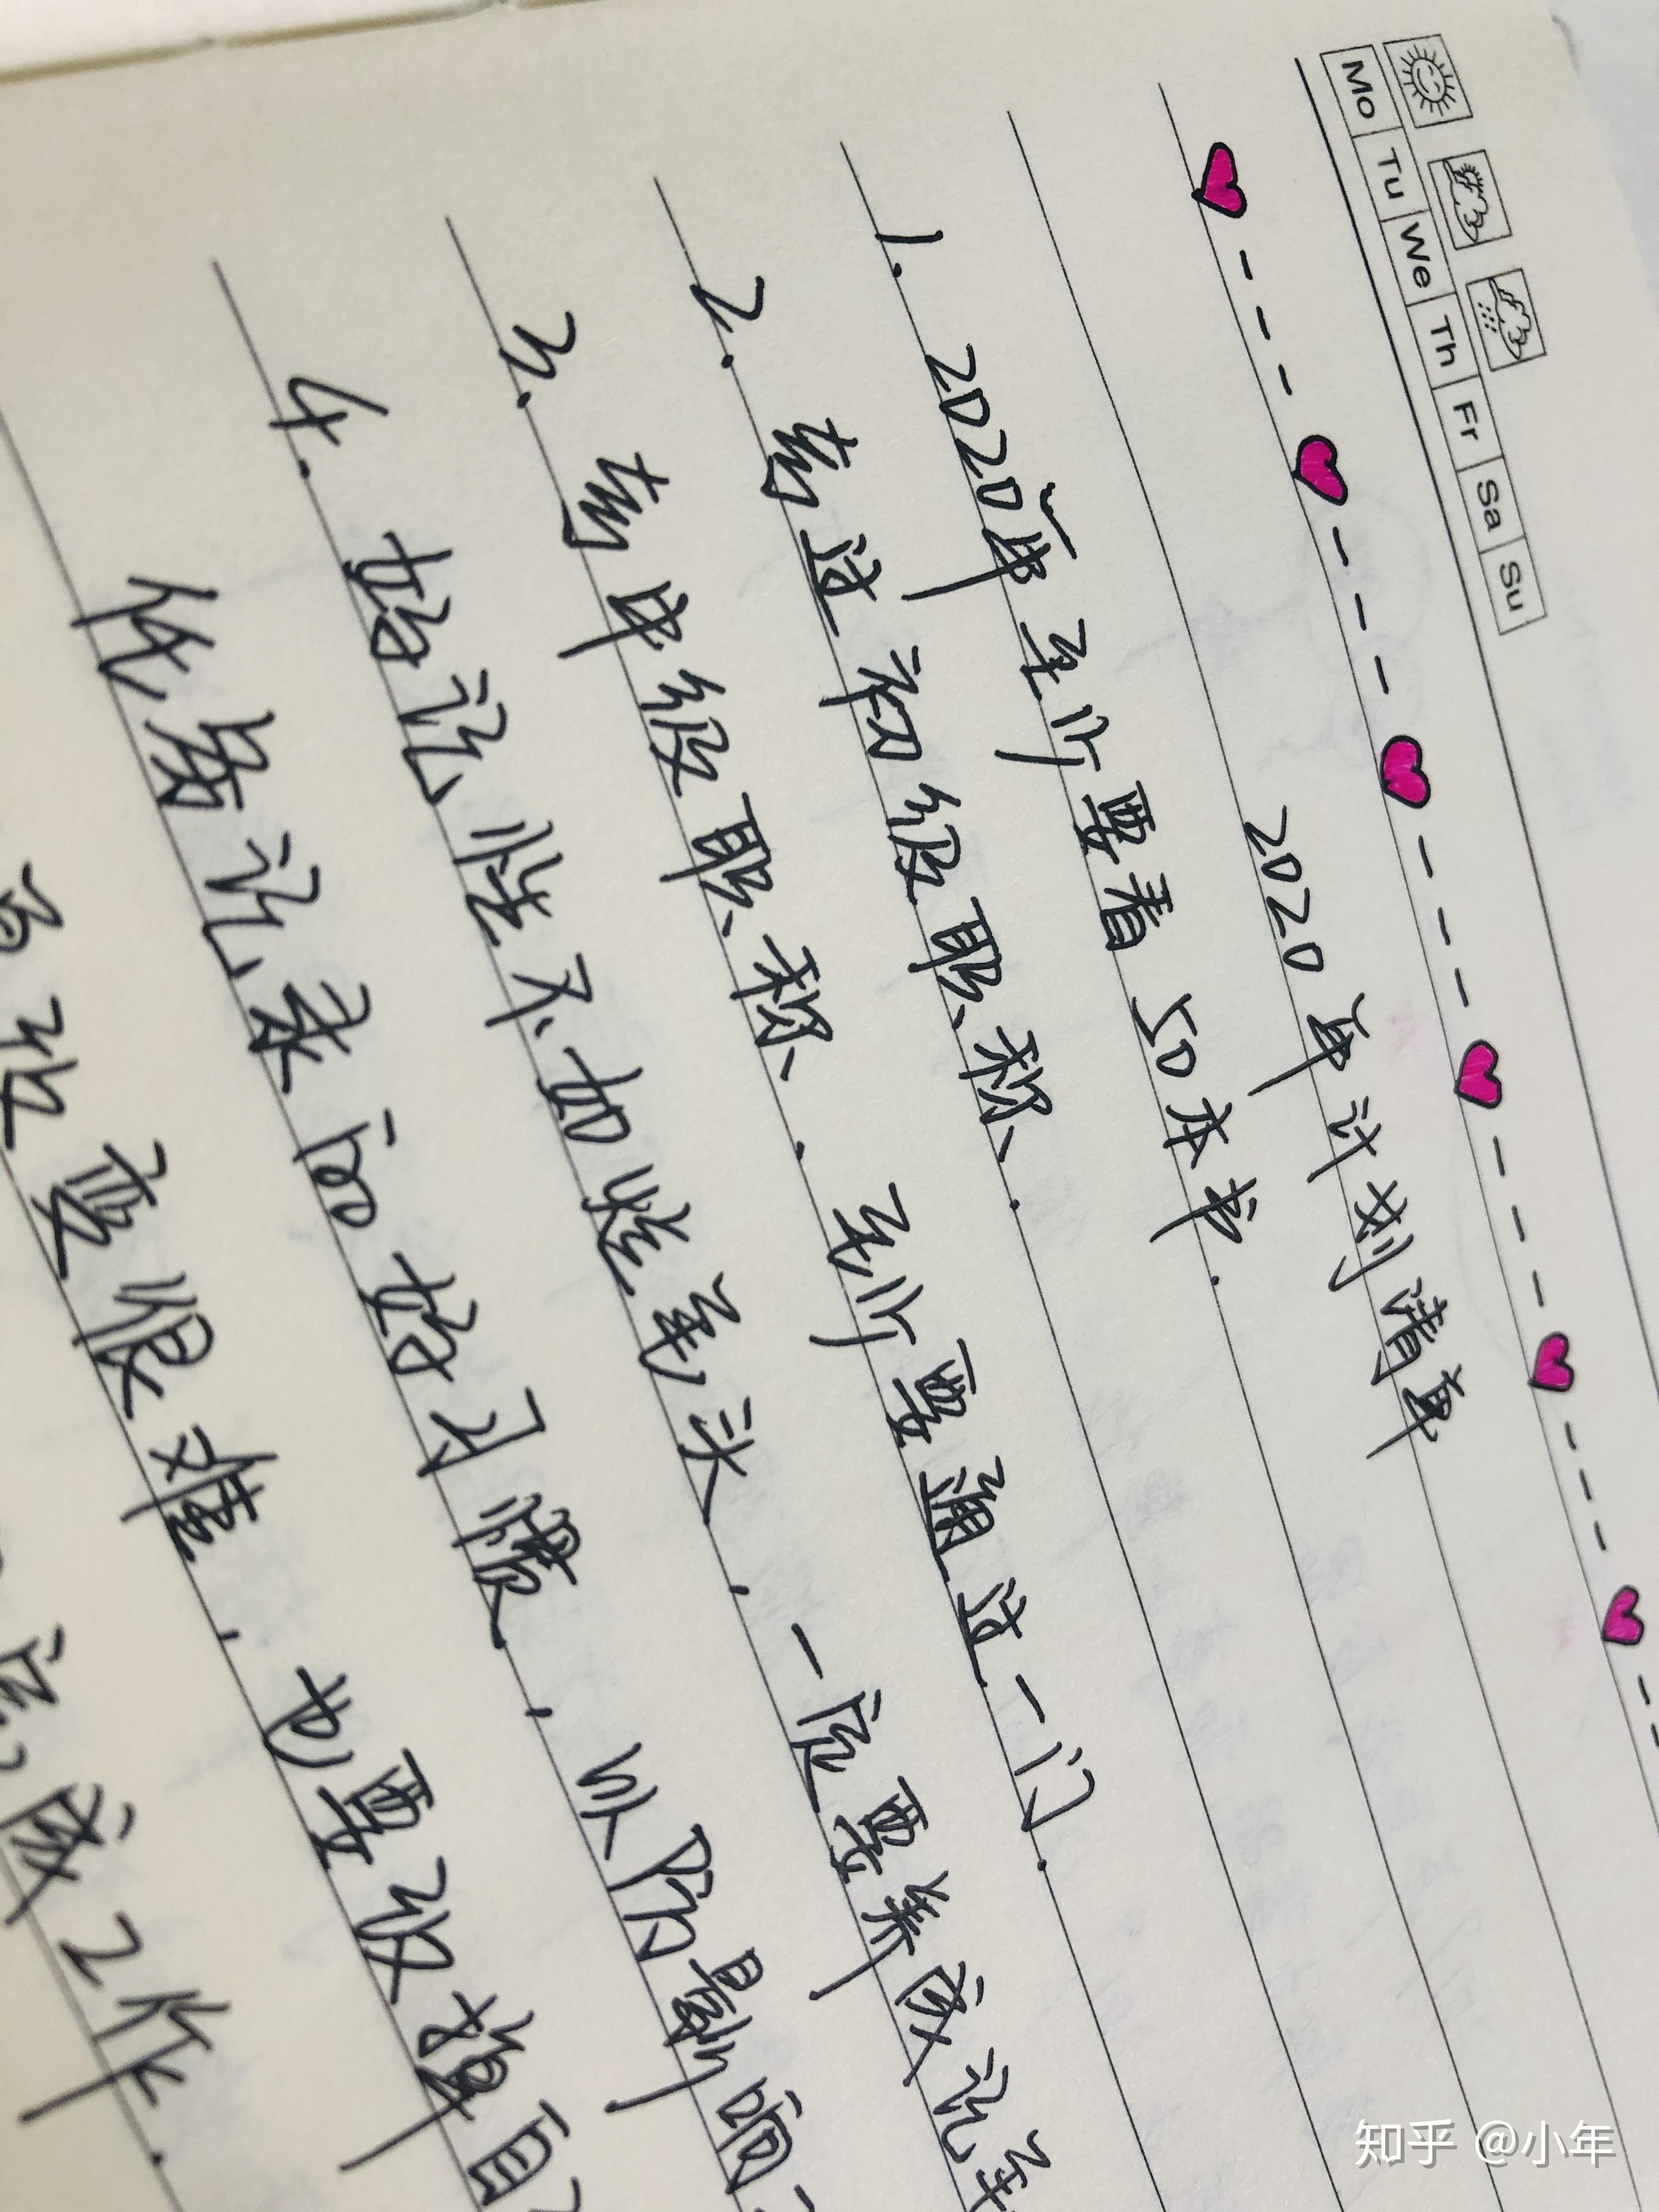 Mo Tu We Th Fr Sa Su
2020年计划清单
1. 2020年至少要看50本书.
2. 考过初级职称.
3. 考中级职称.至少要通过一门.
4. 好记性不如烂笔头.一定要养成记笔
务记录的好习惯.以防影响
改变很难.也要改掉自
完成工作.
知乎 @小年